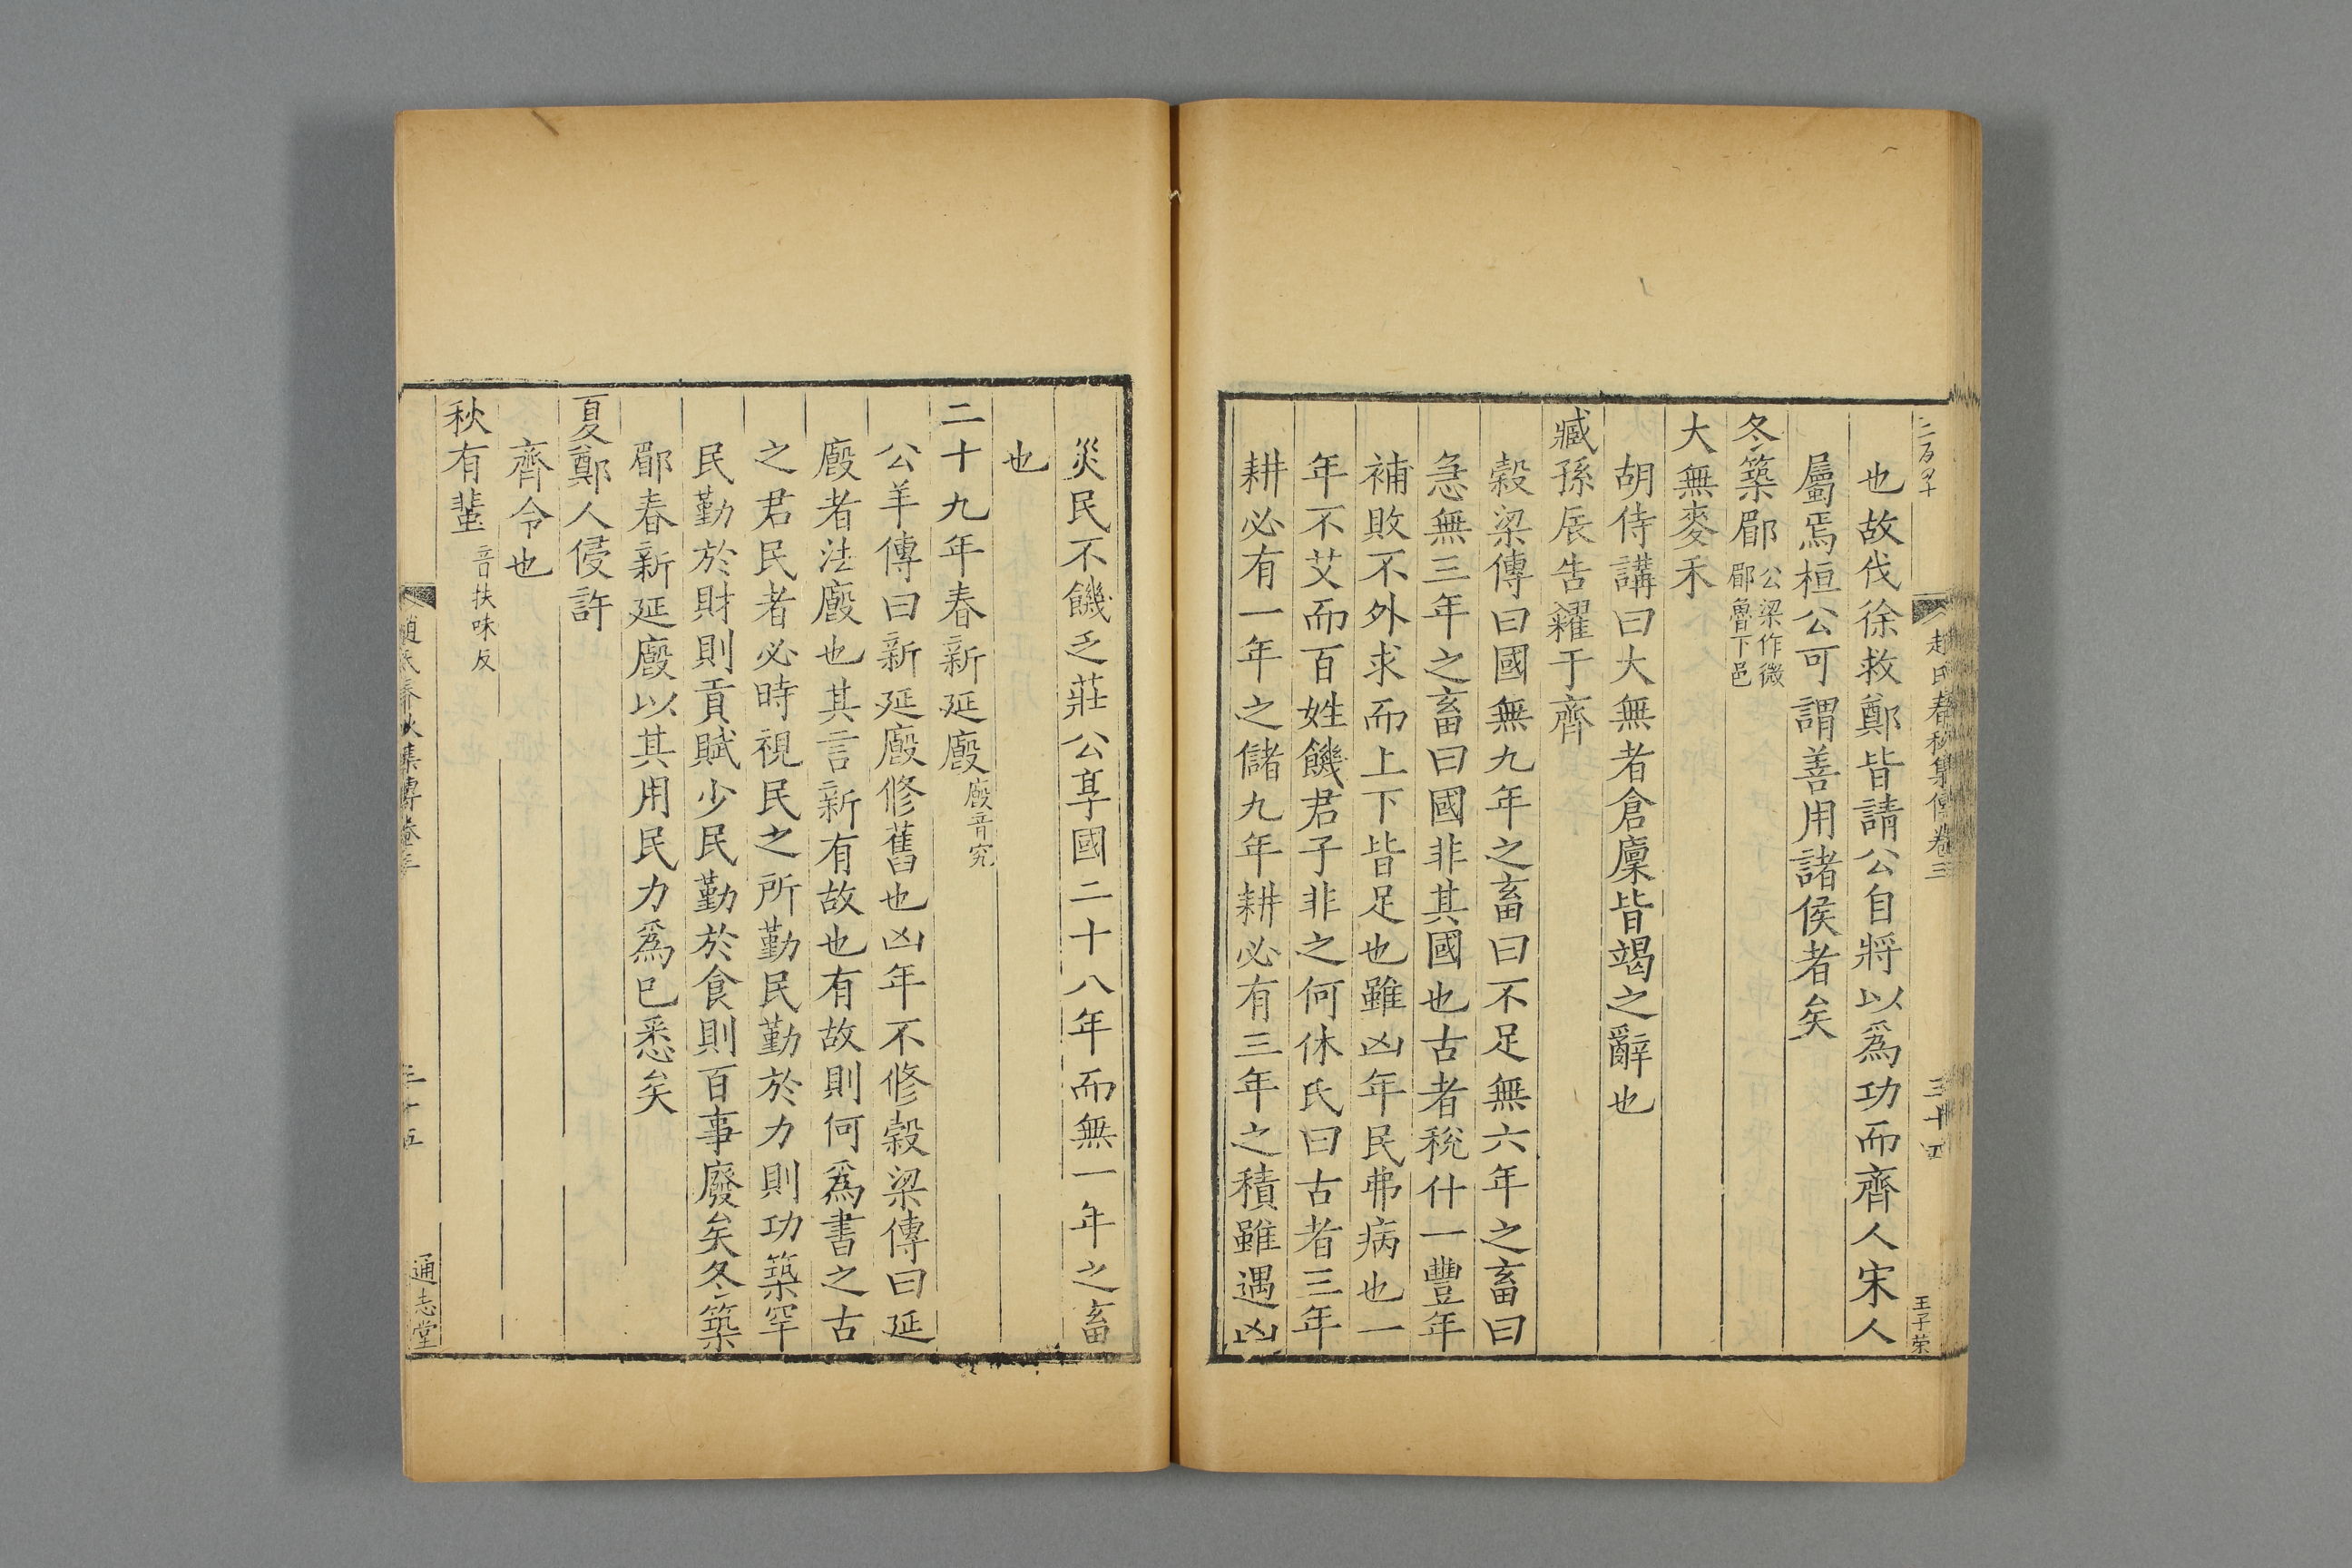 趙氏春秋集傳卷三
三十四
王子榮
也故伐徐救鄭皆請公自將以爲功而齊人宋人
屬焉桓公可謂善用諸侯者矣
冬築郿公梁作微郿魯下邑
大無麥禾
胡侍講曰大無者倉廩皆竭之辭也
臧孫辰告糴于齊
穀梁傳曰國無九年之畜曰不足無六年之畜曰
急無三年之畜曰國非其國也古者稅什一豐年
補敗不外求而上下皆足也雖凶年民弗病也一
年不艾而百姓饑君子非之何休氏曰古者三年
耕必有一年之儲九年耕必有三年之積雖遇凶
災民不饑乏莊公享國二十八年而無一年之畜
也
二十九年春新延廄廄音究
公羊傳曰新延廄修舊也凶年不修穀梁傳曰延
廄者法廄也其言新有故也有故則何爲書之古
之君民者必時視民之所勤民勤於力則功築罕
民勤於財則貢賦少民勤於食則百事廢矣冬築
郿春新延廄以其用民力爲已悉矣
夏鄭人侵許
齊令也
秋有蜚音扶味反
趙氏春秋集傳卷三
三十五
通志堂